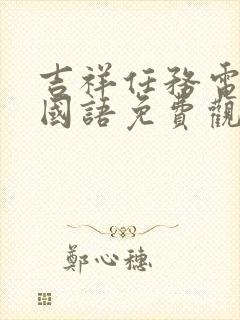 吉祥任務電
國語免費觀
鄭心穗